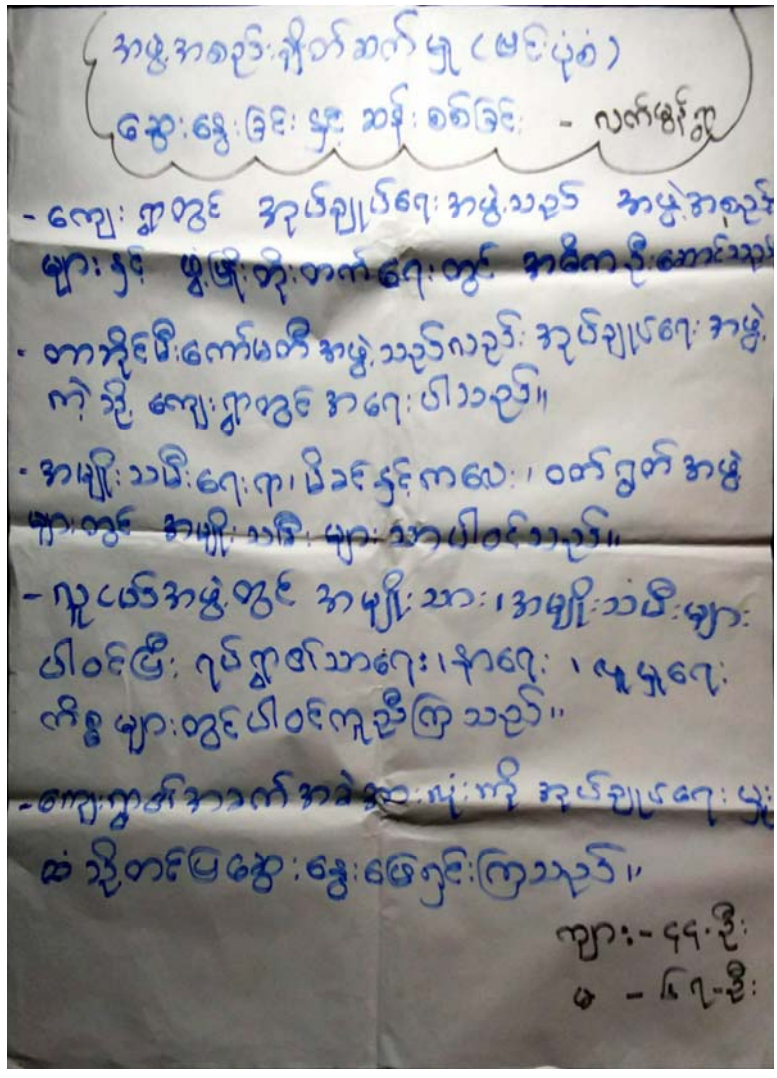 အဖွဲ့အစည်းချိတ်ဆက်မှု (မြင်ပုံစံ)
ဆွေးနွေးခြင်း နှင့် ဆန်းစစ်ခြင်း - လက်ဖွန်ရွာ
- ကျေးရွာတွင် အုပ်ချုပ်ရေးအဖွဲ့သည် အဖွဲ့အစည်း
များနှင့် ဖွံ့ဖြိုးတိုးတက်ရေးတွင် အဓိကဦးဆောင်သည်
- တာဘိုင်မီးကော်မတီအဖွဲ့သည်လည်း အုပ်ချုပ်ရေးအဖွဲ့
ကဲ့သို့ ကျေးရွာတွင် အရေးပါသည်။
- အမျိုးသမီးရေးရာ၊ မိခင်နှင့်ကလေး၊ ဝတ်ရွတ်အဖွဲ့
များတွင် အမျိုးသမီးများသာပါဝင်သည်။
- လူငယ်အဖွဲ့တွင် အမျိုးသား၊ အမျိုးသမီးများ
ပါဝင်ပြီး ရပ်ရွာ၏သာရေး၊ နာရေး၊ လူမှုရေး
ကိစ္စများတွင်ပါဝင်ကူညီကြသည်။
- ကျေးရွာ၏အခက်အခဲအားလုံးကို အုပ်ချုပ်ရေးမှူး
ထံသို့တင်ပြဆွေးနွေးဖြေရှင်းကြသည်။
ကျား - ၄၄-ဦး
မ - ၆၇-ဦး